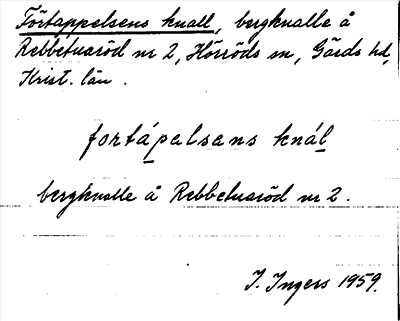 Förtappelsens knall, bergknalle å
Rebbetuaröd nr 2, Hörröds sn, Gärds hd,
Krist. län.
fortápelsans knál
bergknalle å Rebbetuaröd nr 2.
I. Ingers 1959.